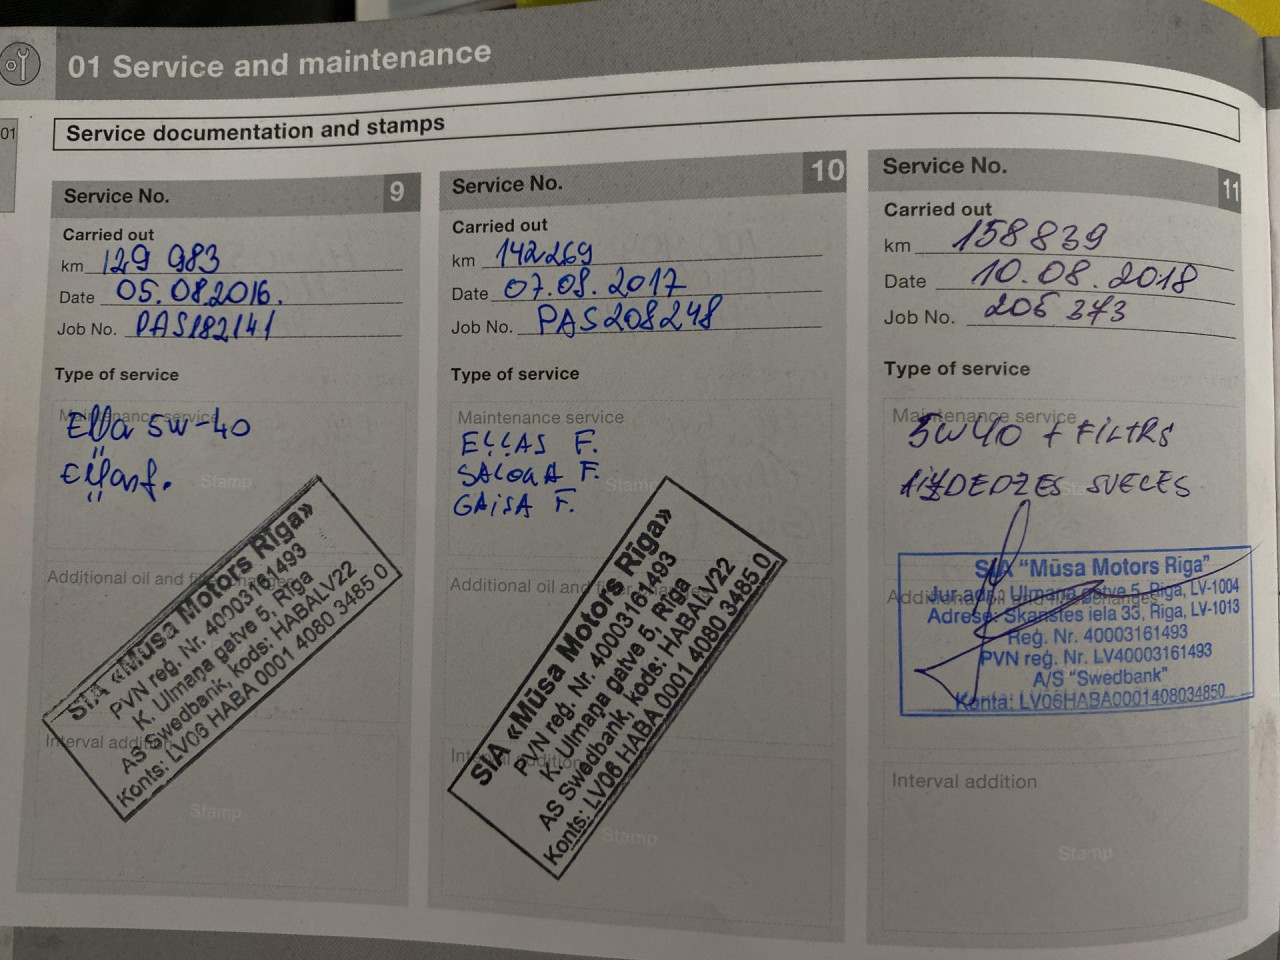 01 Service and maintenance
01
Service documentation and stamps
Service No. 9
Carried out
km 129 983
Date 05.08.2016.
Job No. PAS182141
Type of service
Maintenance service
Eļļa 5W-40
Eļļas f.
Stamp
Additional oil and
SIA «Mūsa Motors Rīga»
PVN reģ. Nr. 40003161493
K. Ulmaņa gatve 5, Rīga
AS Swedbank, kods: HABALV22
Konts: LV06 HABA 0001 4080 3485 0
Interval addition
Stamp
Service No. 10
Carried out
km 142269
Date 07.08.2017
Job No. PAS208248
Type of service
Maintenance service
EĻĻAS F.
SALONA F.
GAISA F.
Stamp
Additional oil and filter changes
SIA «Mūsa Motors Rīga»
PVN reģ. Nr. 40003161493
K. Ulmaņa gatve 5, Rīga
AS Swedbank, kods: HABALV22
Konts: LV06 HABA 0001 4080 3485 0
Interval addition
Stamp
Service No. 11
Carried out
km 158839
Date 10.08.2018
Job No. 205 373
Type of service
Maintenance service
5W40 + FILTRS
AIZDEDZES SVECES
SIA "Mūsa Motors Rīga"
Jur.adr.: Ulmaņa gatve 5, Rīga, LV-1004
Additional oil and filter changes
Adrese: Skanstes iela 33, Rīga, LV-1013
Reģ. Nr. 40003161493
PVN reģ. Nr. LV40003161493
A/S "Swedbank"
Konta: LV06HABA0001408034850
Interval addition
Stamp